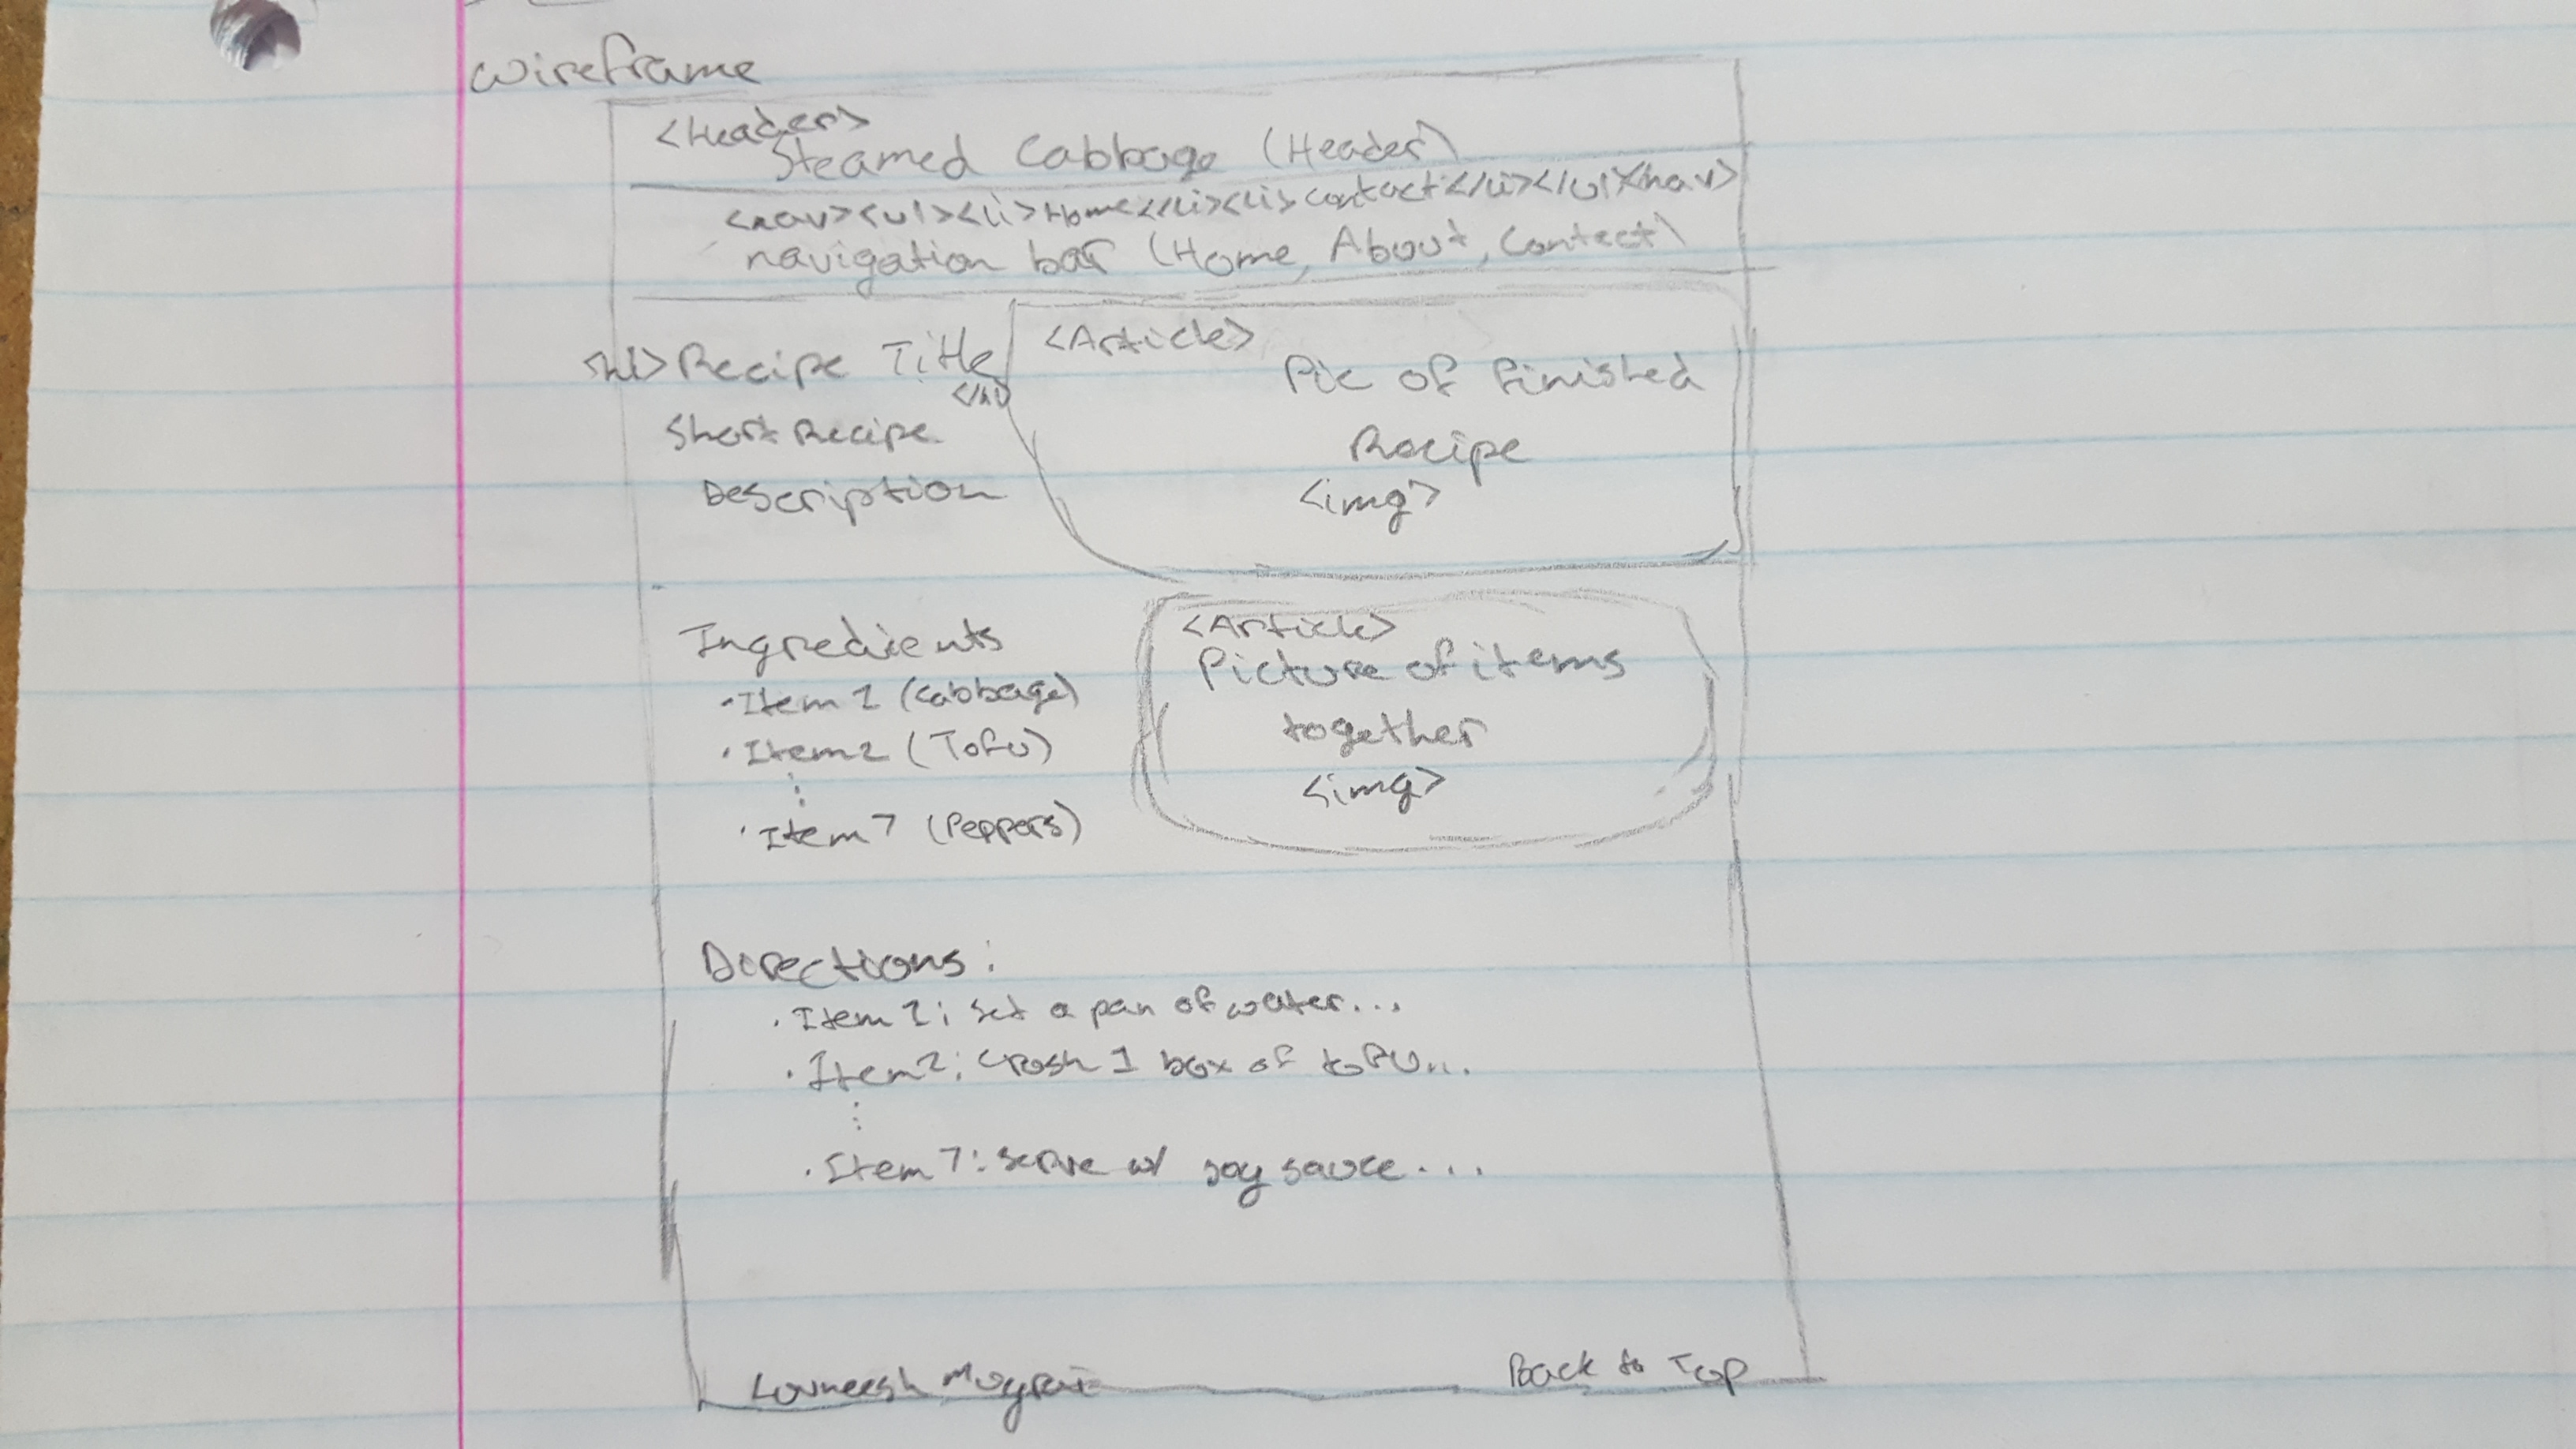 Wireframe
<Header>
Steamed Cabbage (Header)
<nav><ul><li>Home</li><li>contact</li></ul><nav>
navigation bar (Home, About, Contact)
<h1>Recipe Title
</h1>
Short Recipe
Description
<Article>
Pic of finished
Recipe
<img>
Ingredients
·Item 1 (Cabbage)
·Item 2 (Tofu)
⋮
·Item 7 (Peppers)
<Article>
Picture of items
together
<img>
Directions:
·Item 1: Set a pan of water...
·Item 2: Crush 1 box of tofu...
⋮
·Item 7: Serve w/ soy sauce...
Back to Top